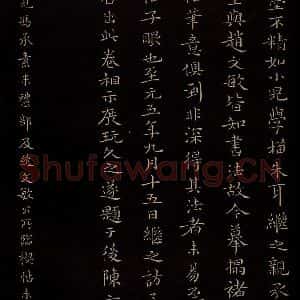 至不精如小兒學描朱耳繼之親承
與趙文敏皆知書法故今摹搨褚
筆意俱到非深得其法者未易
子眼也至元五年九月十五日繼之訪予
出此卷相示展玩久之遂題于後陳
馮承素米禮部及趙文敏公所臨禊帖
Shufawang.CN